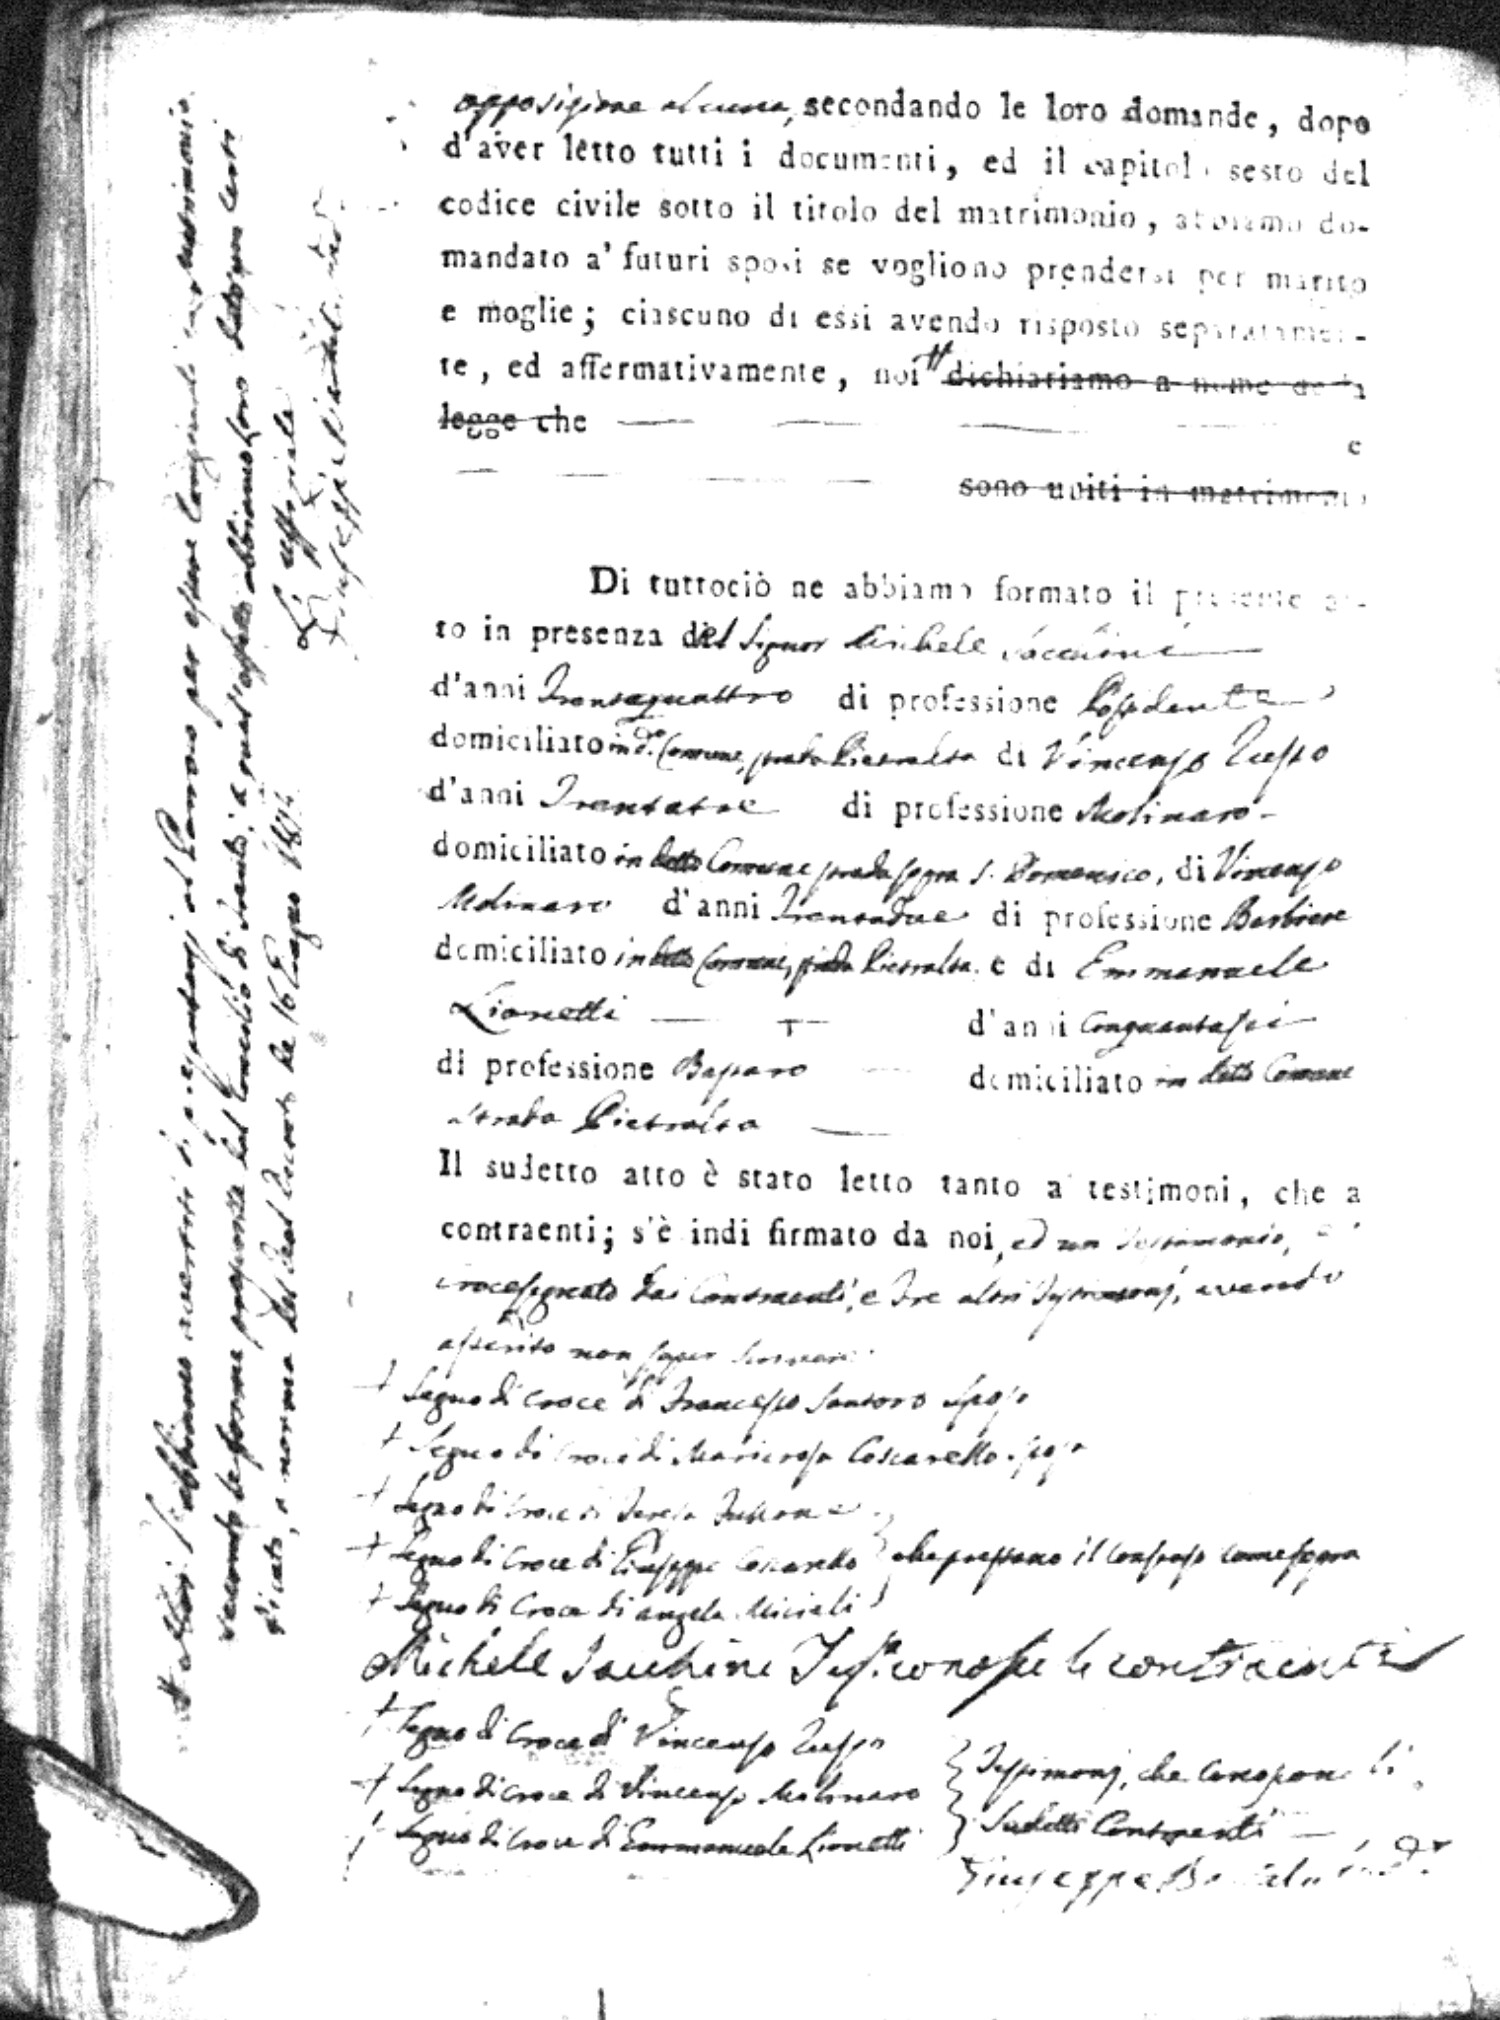 opposizione alcuna, secondando le loro domande, dopo
d'aver letto tutti i documenti, ed il capitolo sesto del
codice civile sotto il titolo del matrimonio, abbiamo do-
mandato a' futuri sposi se vogliono prendersi per marito
e moglie; ciascuno di essi avendo risposto separatamen-
te, ed affermativamente, noi # dichiariamo a nome della
legge che
e
sono uniti in matrimonio
Di tuttociò ne abbiamo formato il presente at-
to in presenza del Signor Michele
d'anni Trentaquattro di professione Possidente
domiciliato in d.o Comune, strada Pietralta di Vincenzo Russo
d'anni Trentatre di professione Molinaro
domiciliato in detto Comune strada sopra S. Domenico, di Vincenzo
Molinaro d'anni Trentadue di professione Barbiere
domiciliato in detto Comune, strada Pietralta e di Emmanuele
Lionetti d'anni Cinquantasei
di professione Bastaro domiciliato in detto Comune
strada Pietralta
Il sudetto atto è stato letto tanto a' testimoni, che a
contraenti; s'è indi firmato da noi, ed un Testimonio, e
crocesegnato dai Contraenti, e Tre altri Testimonj, avendo
asserito non saper scrivere
+ Segno di Croce di Francesco Santoro Sposo
+ Segno di Croce di Mariarosa Coscarello Sposa
+ Segno di Croce di Teresa
+ Segno di Croce di Giuseppe Coscarello } che prestano il consenso come sopra
+ Segno di Croce di Angela Micieli
Michele Iacchini Tes.o conosce li contraenti
+ Segno di Croce di Vincenzo Russo
+ Segno di Croce di Vincenzo Molinaro } Testimonj, che conoscono li
+ Segno di Croce di Emmanuele Lionetti } sudetti Contraenti
Giuseppe
# abbiamo avvertiti di presentarsi al Parroco per essere congiunti in matrimonio
secondo le forme prescritte dal Concilio di Trento, a qual'effetto abbiamo loro
a norma del Real Decreto de 16 Giugno
L'uffiziale
Giuseppe